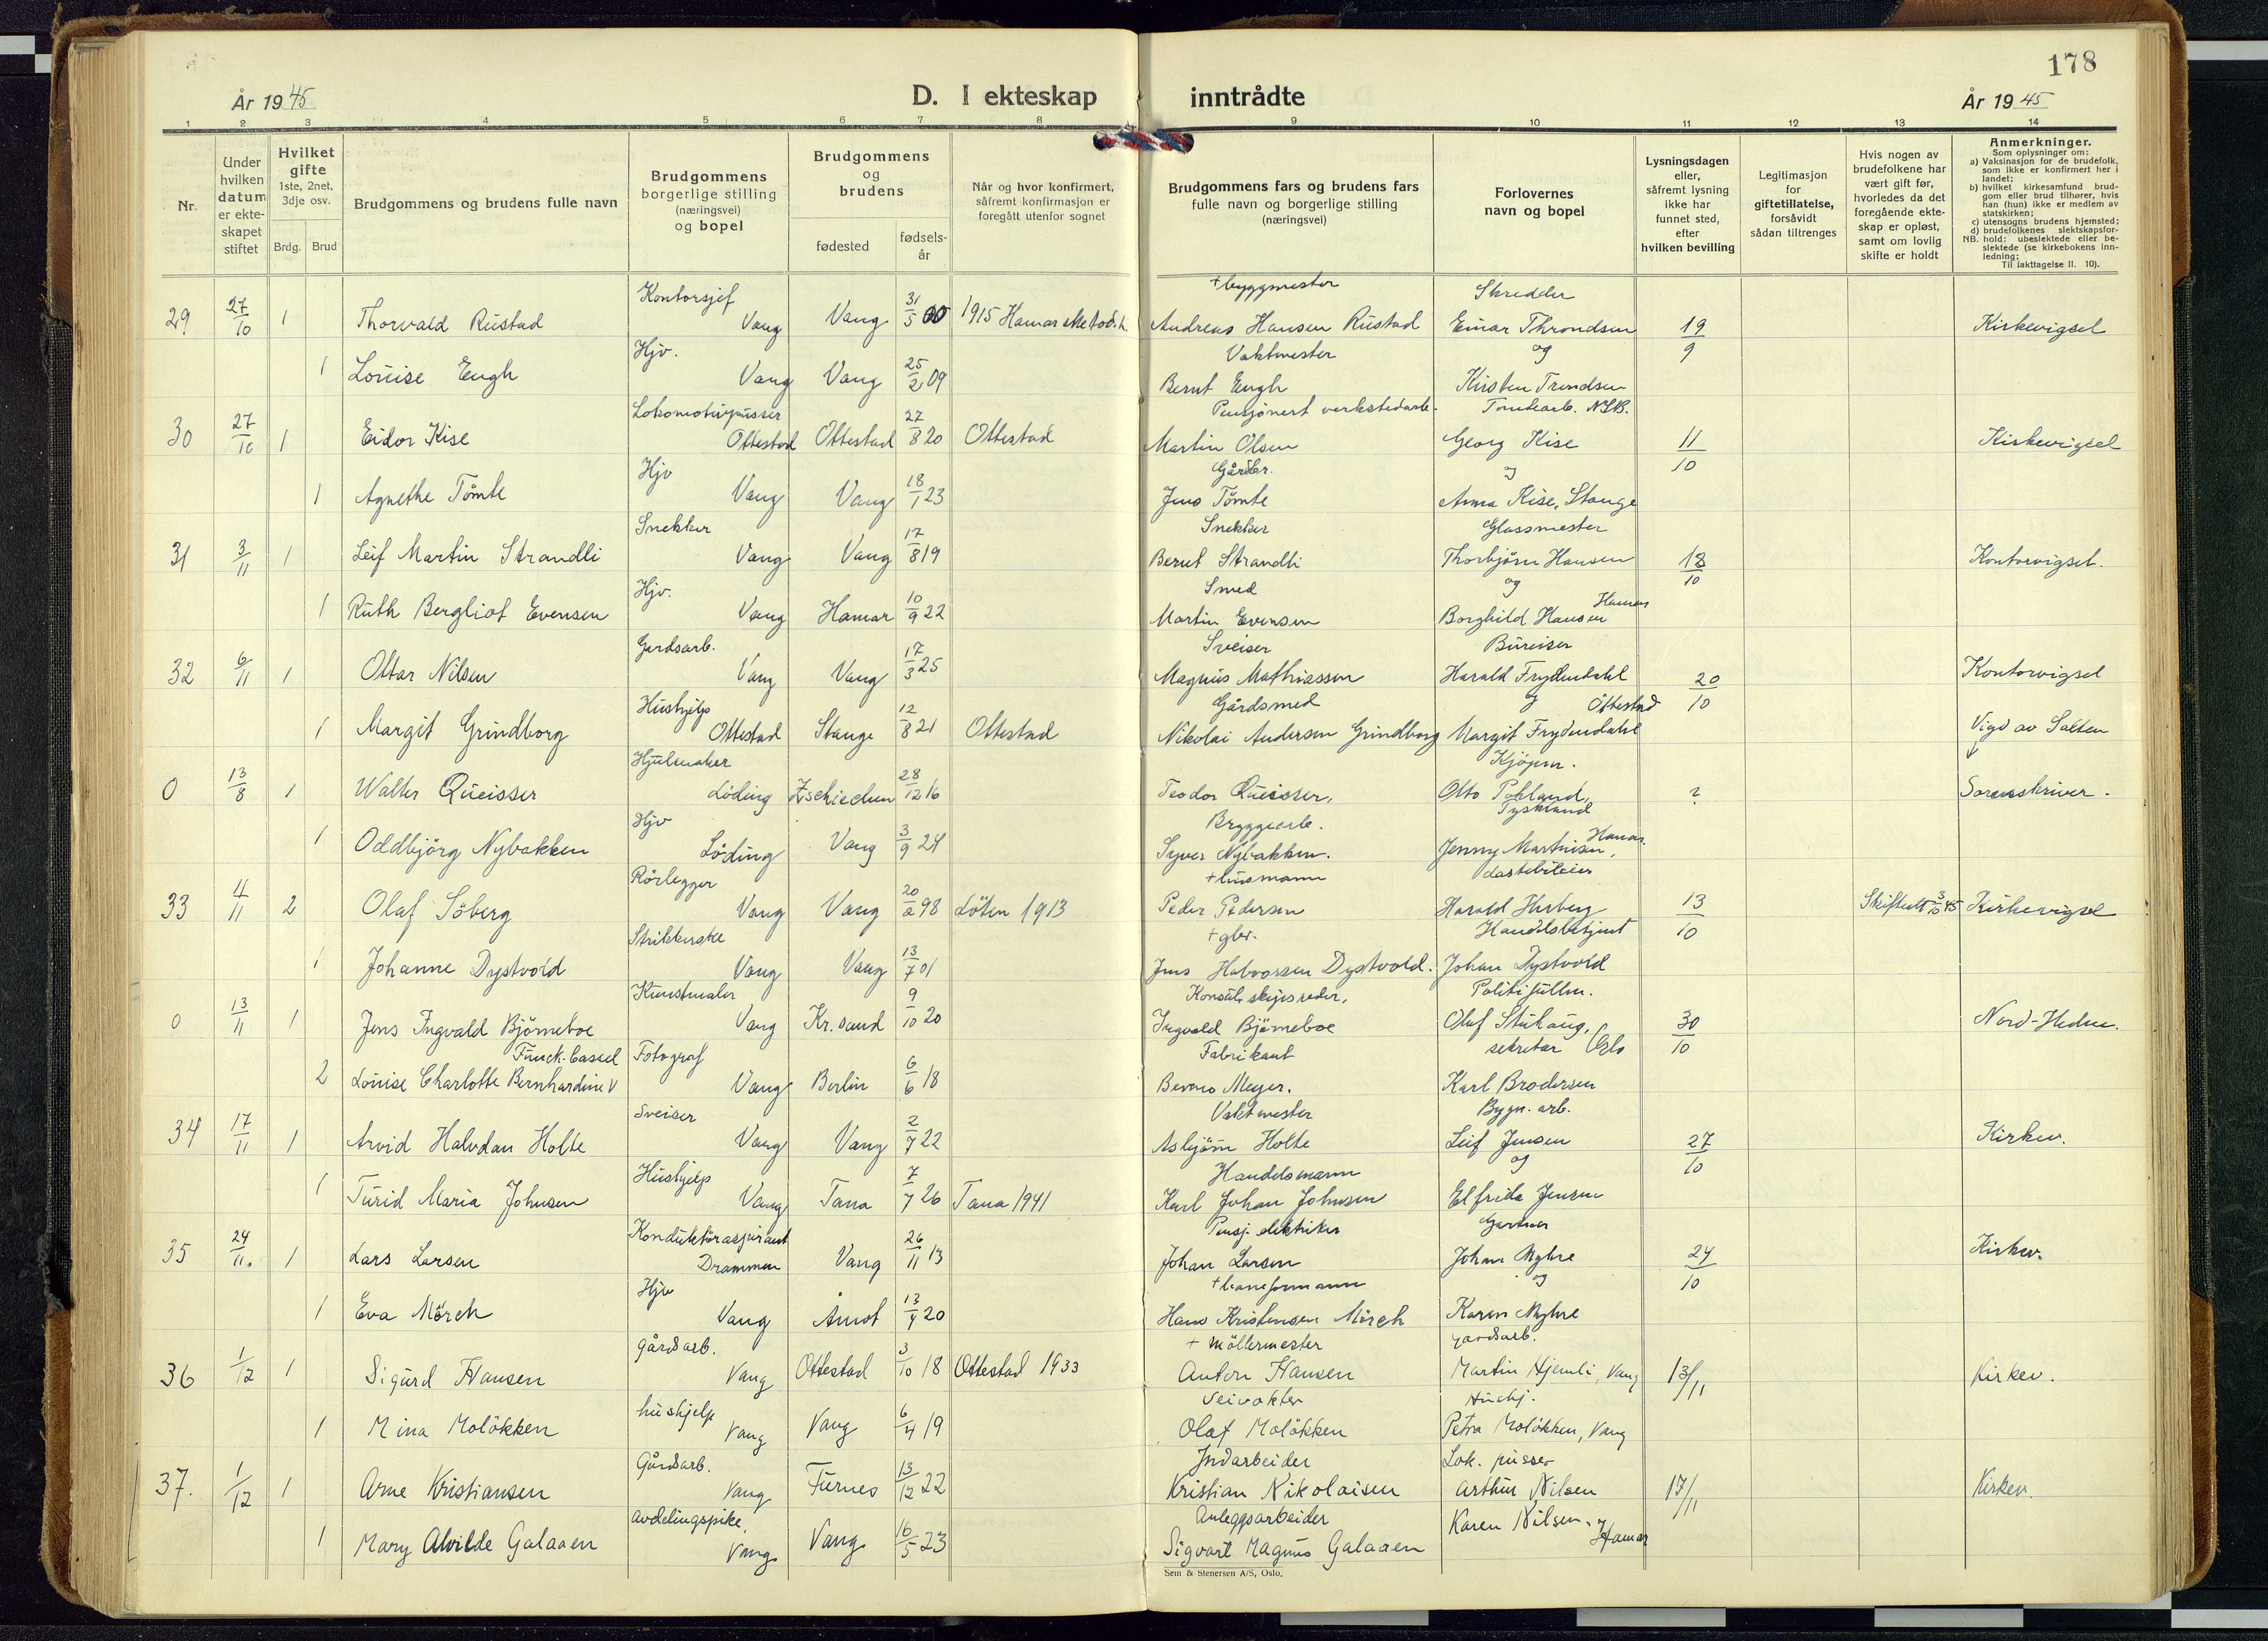 178
År 1945
D. I ekteskap inntrådte
År 1945
1 2 3 4 5 6 7 8 9 10 11 12 13 14
Nr.
Under hvilken datum er ekteskapet stiftet
Hvilket gifte 1ste, 2net, 3dje osv.
Brdg. Brud
Brudgommens og brudens fulle navn
Brudgommens borgerlige stilling (næringsvei) og bopel
Brudgommens og brudens
fødested
fødselsår
Når og hvor konfirmert, såfremt konfirmasjon er foregått utenfor sognet
Brudgommens fars og brudens fars fulle navn og borgerlige stilling (næringsvei)
Forlovernes navn og bopel
Lysningsdagen eller, såfremt lysning ikke har funnet sted, efter hvilken bevilling
Legitimasjon for giftetillatelse, forsåvidt sådan tiltrenges
Hvis nogen av brudefolkene har vært gift før, hvorledes da det foregående ekteskap er opløst, samt om lovlig skifte er holdt
Anmerkninger.
Som oplysninger om:
a) Vaksinasjon for de brudefolk, som ikke er konfirmert her i landet;
b) hvilket kirkesamfund brudgom eller brud tilhører, hvis han (hun) ikke er medlem av statskirken;
c) utensogns brudens hjemsted;
d) brudefolkenes slektskapsforhold: ubeslektede eller beslektede (se kirkebokens innledning;
NB. Til iakttagelse II. 10).
Kontorsjef +byggmester Skredder
29 27/10 1 Thorvald Rustad Vang Vang 31/5 00 1915 Hamar Metod.k. Andreas Hansen Rustad Einar Throndsen 19/9 Kirkevigsel
Hjv. Vaktmester og
1 Louise Engh Vang Vang 25/2 09 Bernt Engh Kirsten Trondsen
Lokomotivpusser Pensjonert verkstedarb. Tomtearb. NSB.
30 27/10 1 Eidor Kise Ottestad Ottestad 27/8 20 Ottestad Martin Olsen Georg Kise 11/10 Kirkevigsel
Hjv Gårdbr. og
1 Agnethe Tömte Vang Vang 18/1 23 Jens Tömte Anna Kise, Stange
Snekker Snekker Glassmester
31 3/11 1 Leif Martin Strandli Vang Vang 17/8 19 Bernt Strandli Thorbjörn Hansen 18/10 Kontorvigsel.
Hjv. Smed og Hamar
1 Ruth Bergliot Evensen Vang Hamar 10/9 22 Martin Evensen Borghild Hansen
Gardsarb. Sveiser Bureiser
32 6/11 1 Ottar Nilsen Vang Vang 17/3 25 Magnus Mathiassen Harald Frydendahl 20/10 Kontorvigsel
Hushjelp Gårdsmed og Ottestad
1 Margit Grindborg Ottestad Stange 12/8 21 Ottestad Nikolai Andersen Grindborg Margit Frydendahl Vigd av Salten
Hjulmaker Kjöpm.
0 13/8 1 Walter Queisser Löding Zschiechen 28/12 16 Teodor Queisser, Otto Pohland, Tyskland ? Sorenskriver.
Hjv Bryggearb.
1 Oddbjörg Nybakken Löding Vang 3/9 24 Syver Nybakken. Jenny Martinsen, Hamar.
Rörlegger +husmann Lastebileier
33 4/11 2 Olaf Söberg Vang Vang 20/2 98 Löten 1913 Peder Pedersen Harald Herberg 13/10 Skifteatt 3/10 45 Kirkevigsel
Strikkerske +gbr. Handelsbetjent
1 Johanne Dystvold Vang Vang 13/7 01 Jens Halvorsen Dystvold. Johan Dystvold
Kunstmaler Konsul, skipsreder, Politifullm.
0 13/11 1 Jens Ingvald Björneboe Vang Kr.sand 9/10 20 Ingvald Björneboe Olaf Stuhaug, 30/10 Nord-Hedm.
Funck-Cassel Fotograf Fabrikant sekretær Oslo
2 Louise Charlotte Bernhardine V Vang Berlin 6/6 18 Benno Meyer. Karl Brodersen
Sveiser Vaktmester Bygn. arb.
34 17/11 1 Arvid Halvdan Holte Vang Vang 2/7 22 Asbjörn Holte Leif Jensen 27/10 Kirkev.
Hushjelp Handelsmann og
1 Turid Maria Johnsen Vang Tana 7/7 26 Tana 1941 Karl Johan Johnsen Elfrida Jensen
Konduktöraspirant Pensj. elektriker Gartner
35 24/11. 1 Lars Larsen Drammen Vang 26/11 13 Johan Larsen Johan Myhre 24/10 Kirkev.
Hjv +baneformann og
1 Eva Mörch Vang Åmot 13/4 20 Hans Kristensen Mörch Karen Myhre
gårdsarb. + möllermester gardsarb.
36 1/12 1 Sigurd Hansen Vang Ottestad 3/10 18 Ottestad 1933 Anton Hansen Martin Hjemli, Vang 13/11 Kirkev.
hushjelp Veivokter Hushj.
1 Mina Molökken Vang Vang 6/4 19 Olaf Molökken Petra Molökken, Vang
Gårdsarb. Jordarbeider Lok. pusser
37. 1/12 1 Arne Kristiansen Vang Furnes 13/12 22 Kristian Nikolaisen Arthur Nilsen 17/11 Kirkev.
avdelingspike, Anleggsarbeider
1 Mary Alvilde Galaaen Vang Vang 16/5 23 Sigvart Magnus Galaaen Karen Nilsen, Hamar
Sem & Stenersen A/S, Oslo,